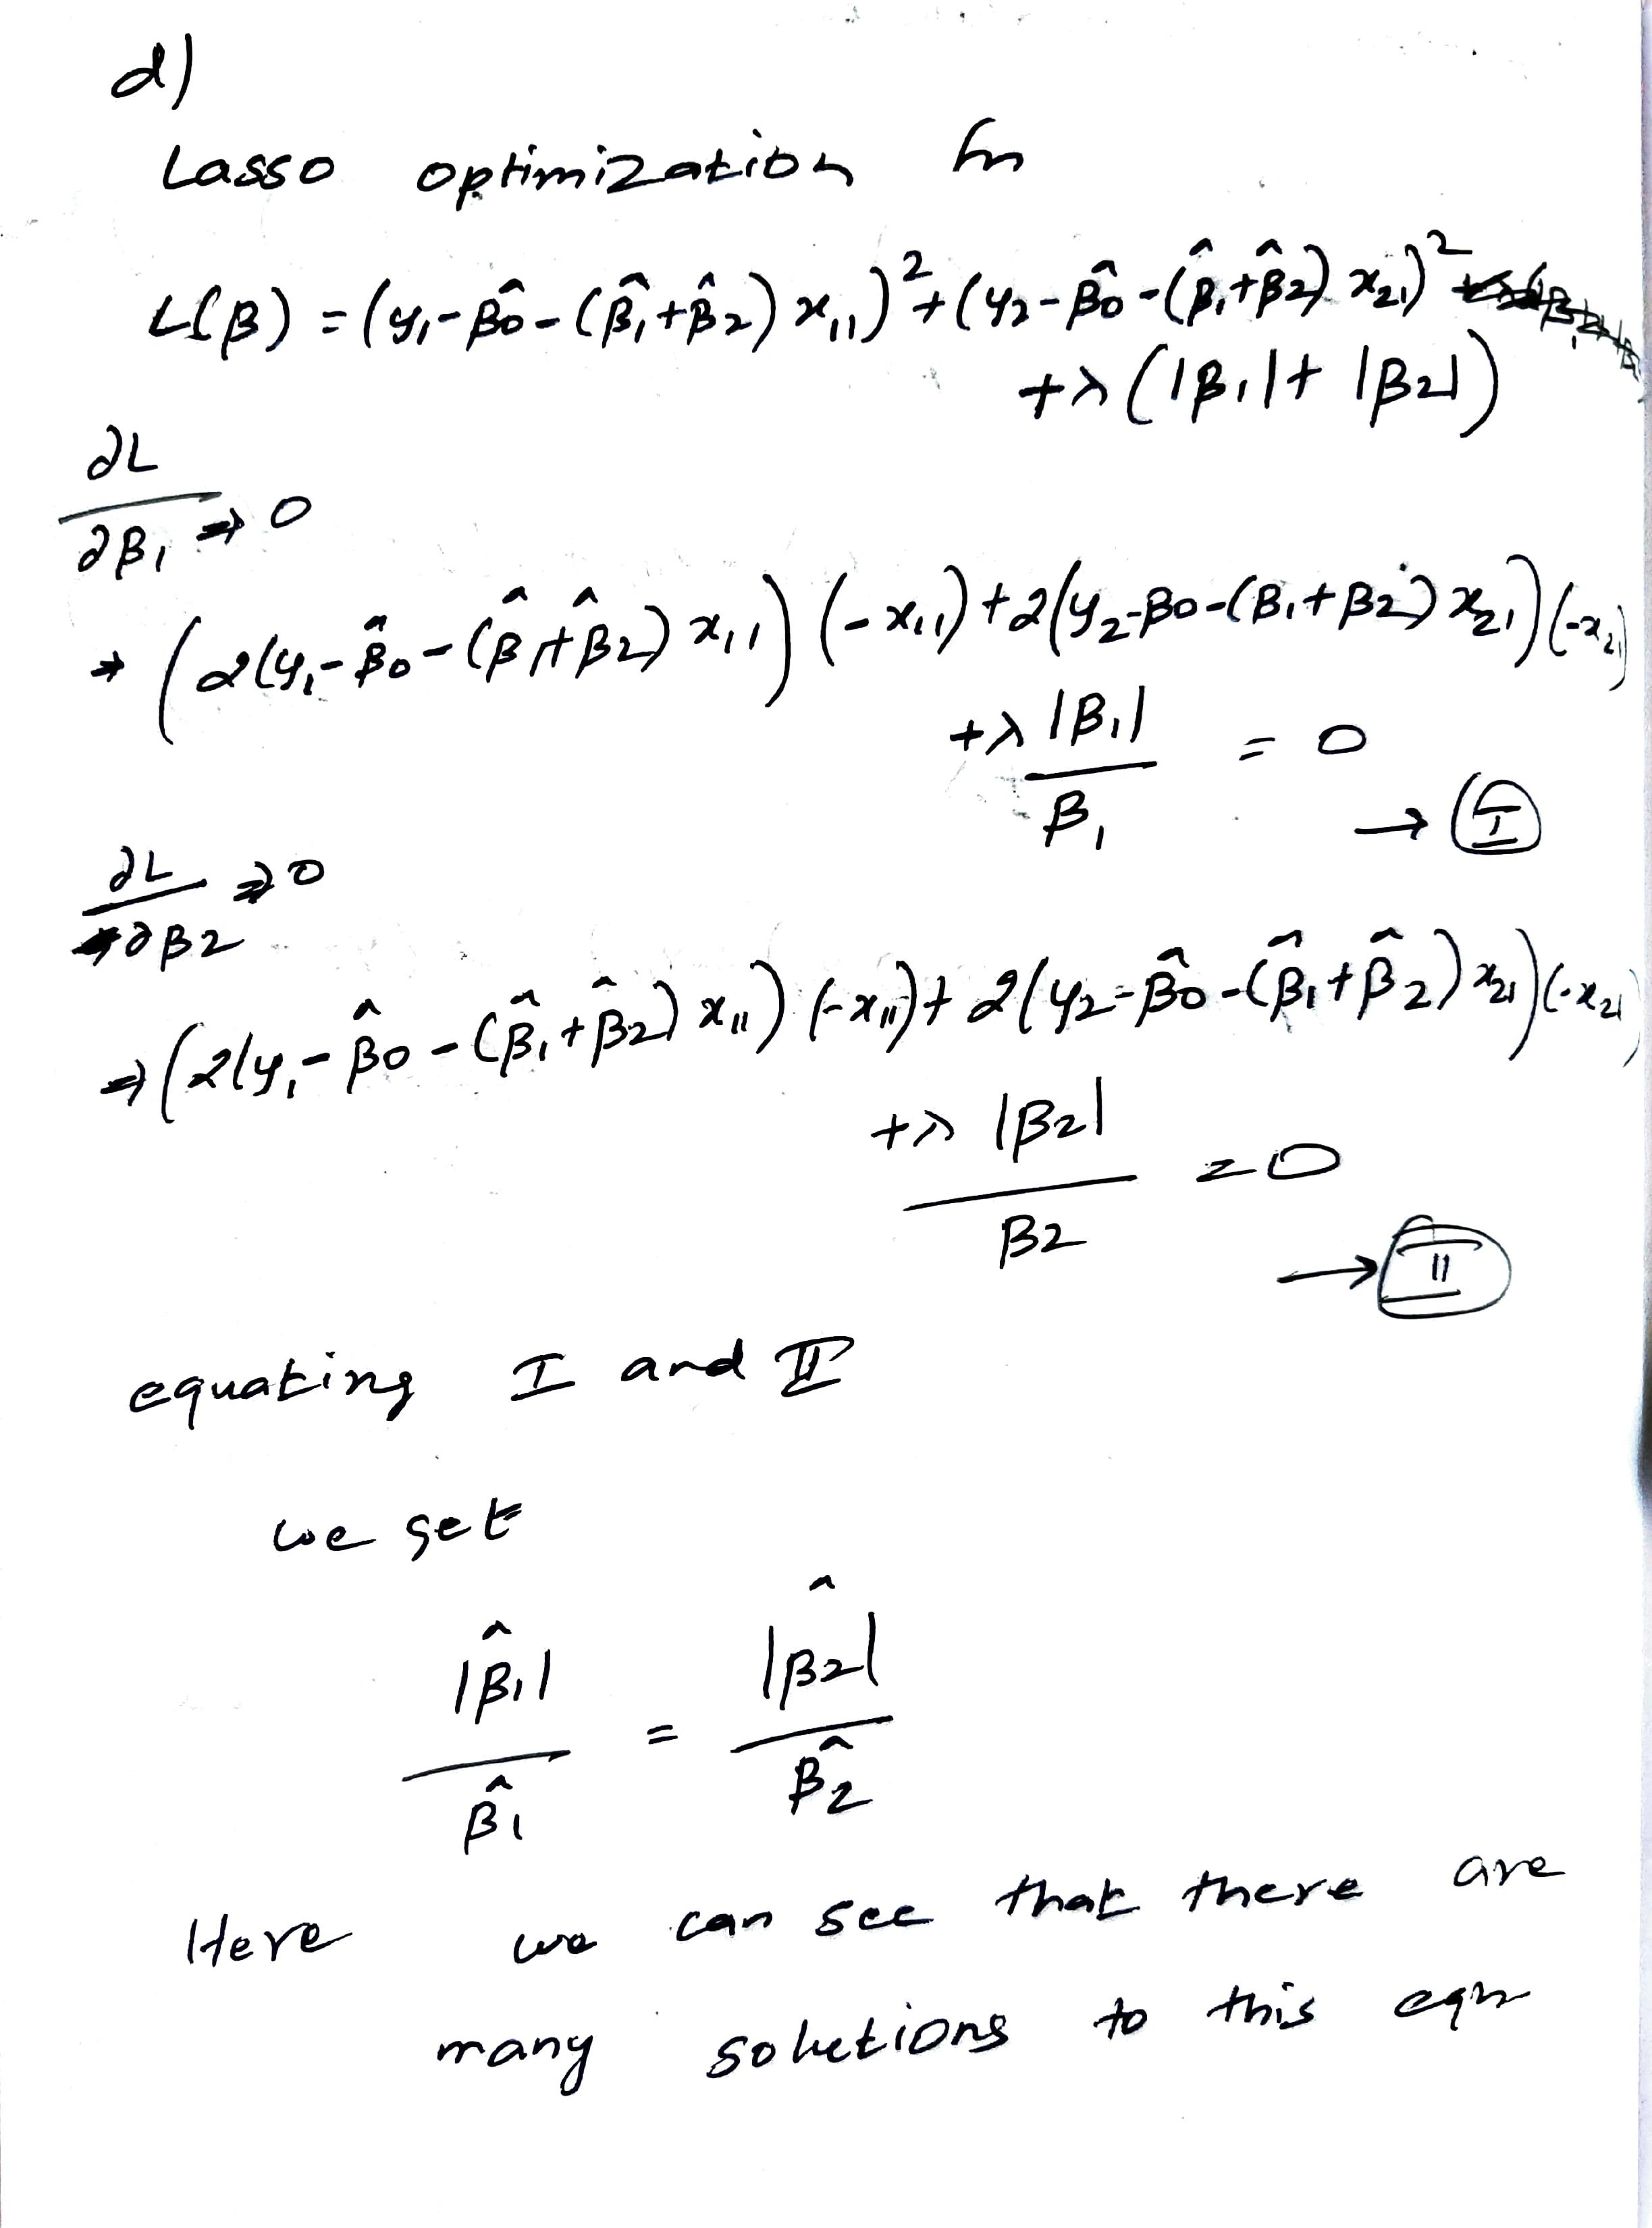 d)
Lasso optimization fn
L(β) = (y₁ - β̂0 - (β̂₁+β̂₂) x₁₁)² + (y₂ - β̂0 - (β̂₁+β̂2) x₂₁)²
+λ (|β₁| + |β2|)
∂L/∂β₁ ⇒ 0
→ (2(y₁ - β̂₀ - (β̂1+β̂2) x₁₁) (-x₁₁) + 2(y₂-β0-(β₁+β2) x₂₁) (-x₂₁)
+λ |β₁|/β₁ = 0
→ (I)
∂L/∂β2 ⇒ 0
⇒ (2(y₁ - β̂0 - (β̂₁+β̂2) x₁₁) (-x₁₁) + 2(y2 - β̂0 - (β̂₁+β̂2) x₂₁) (-x₂₁
+λ |β2|/β2 = 0
→ (II)
equating I and II
we get
|β̂₁|/β̂₁ = |β̂2|/β̂2
Here we can see that there are
many solutions to this eqn